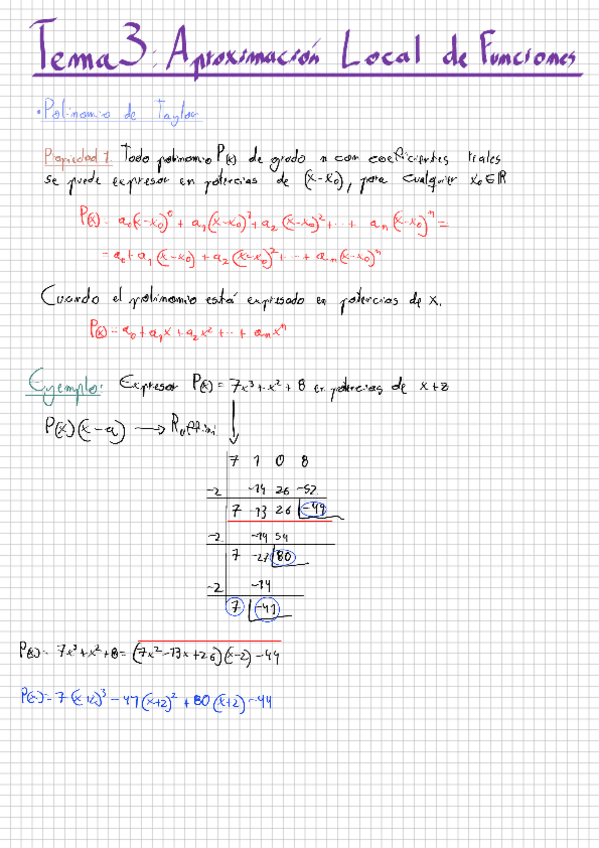 Tema 3: Aproximación Local de Funciones
• Polinomio de Taylor
Propiedad 1. Todo polinomio P(x) de grado n con coeficientes reales
se puede expresar en potencias de (x-x₀), para cualquier x₀∈ℝ
P(x) = a₀(x-x₀)⁰ + a₁(x-x₀)¹ + a₂(x-x₀)² + ... + aₙ(x-x₀)ⁿ =
= a₀ + a₁(x-x₀) + a₂(x-x₀)² + ... + aₙ(x-x₀)ⁿ
Cuando el polinomio está expresado en potencias de x.
P(x) = a₀ + a₁x + a₂x² + ... + aₙxⁿ
Ejemplo: Expresar P(x) = 7x³ + x² + 8 en potencias de x+2
P(x)(x-a) → Ruffini
7 1 0 8
-2 -14 26 -52
7 -13 26 -44
-2 -14 54
7 -27 80
-2 -14
7 -41
P(x) = 7x³+x²+8 = (7x²-13x+26)(x-2) -44
P(x) = 7(x+2)³ - 41(x+2)² + 80(x+2) - 44